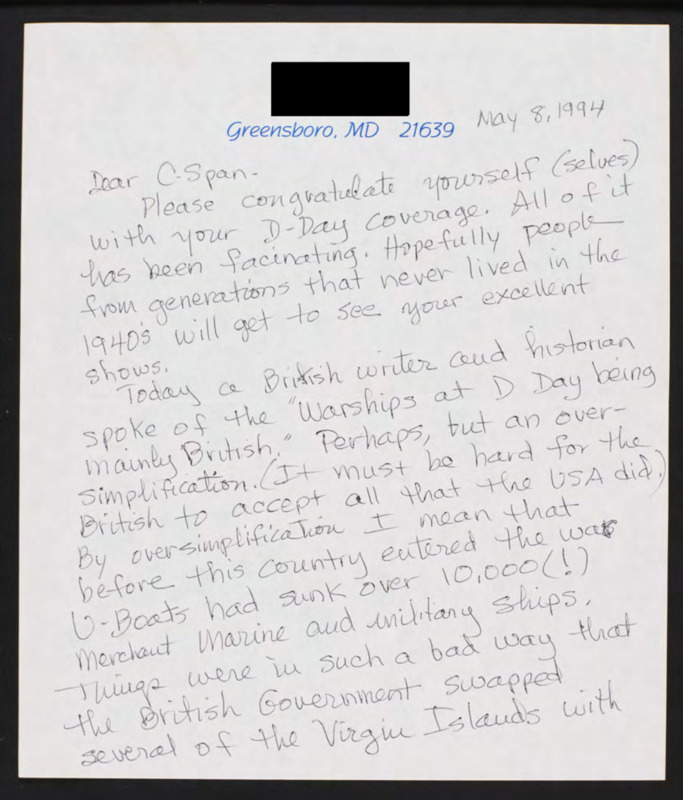 Greensboro, MD 21639
May 8, 1994
Dear C-Span-
Please congratulate yourself (selves)
with your D-Day coverage. All of it
has been facinating. Hopefully people
from generations that never lived in the
1940's will get to see your excellent
shows.
Today a British writer and historian
spoke of the "Warships at D Day being
mainly British." Perhaps, but an over-
simplification. (It must be hard for the
British to accept all that the USA did.)
By oversimplification I mean that
before this country entered the war
U-Boats had sunk over 10,000(!)
Merchant Marine and military ships.
Things were in such a bad way that
the British Government swapped
several of the Virgin Islands with